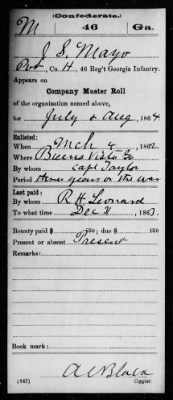 (Confederate.)
M 46 Ga.
J. S. Mayo
Pvt, Co. H, 46 Reg't Georgia Infantry.
Appears on
Company Muster Roll
of the organization named above,
for July & Aug, 1864
Enlisted:
When Mch 4, 1862
Where Buena Vista Ga
By whom Capt Taylor
Period three years or the war
Last paid:
By whom R. H. Leonard
To what time Dec 31, 1863.
Bounty paid $ 100; due $ 100
Present or absent Present
Remarks:
Book mark:
(642) Copyist.